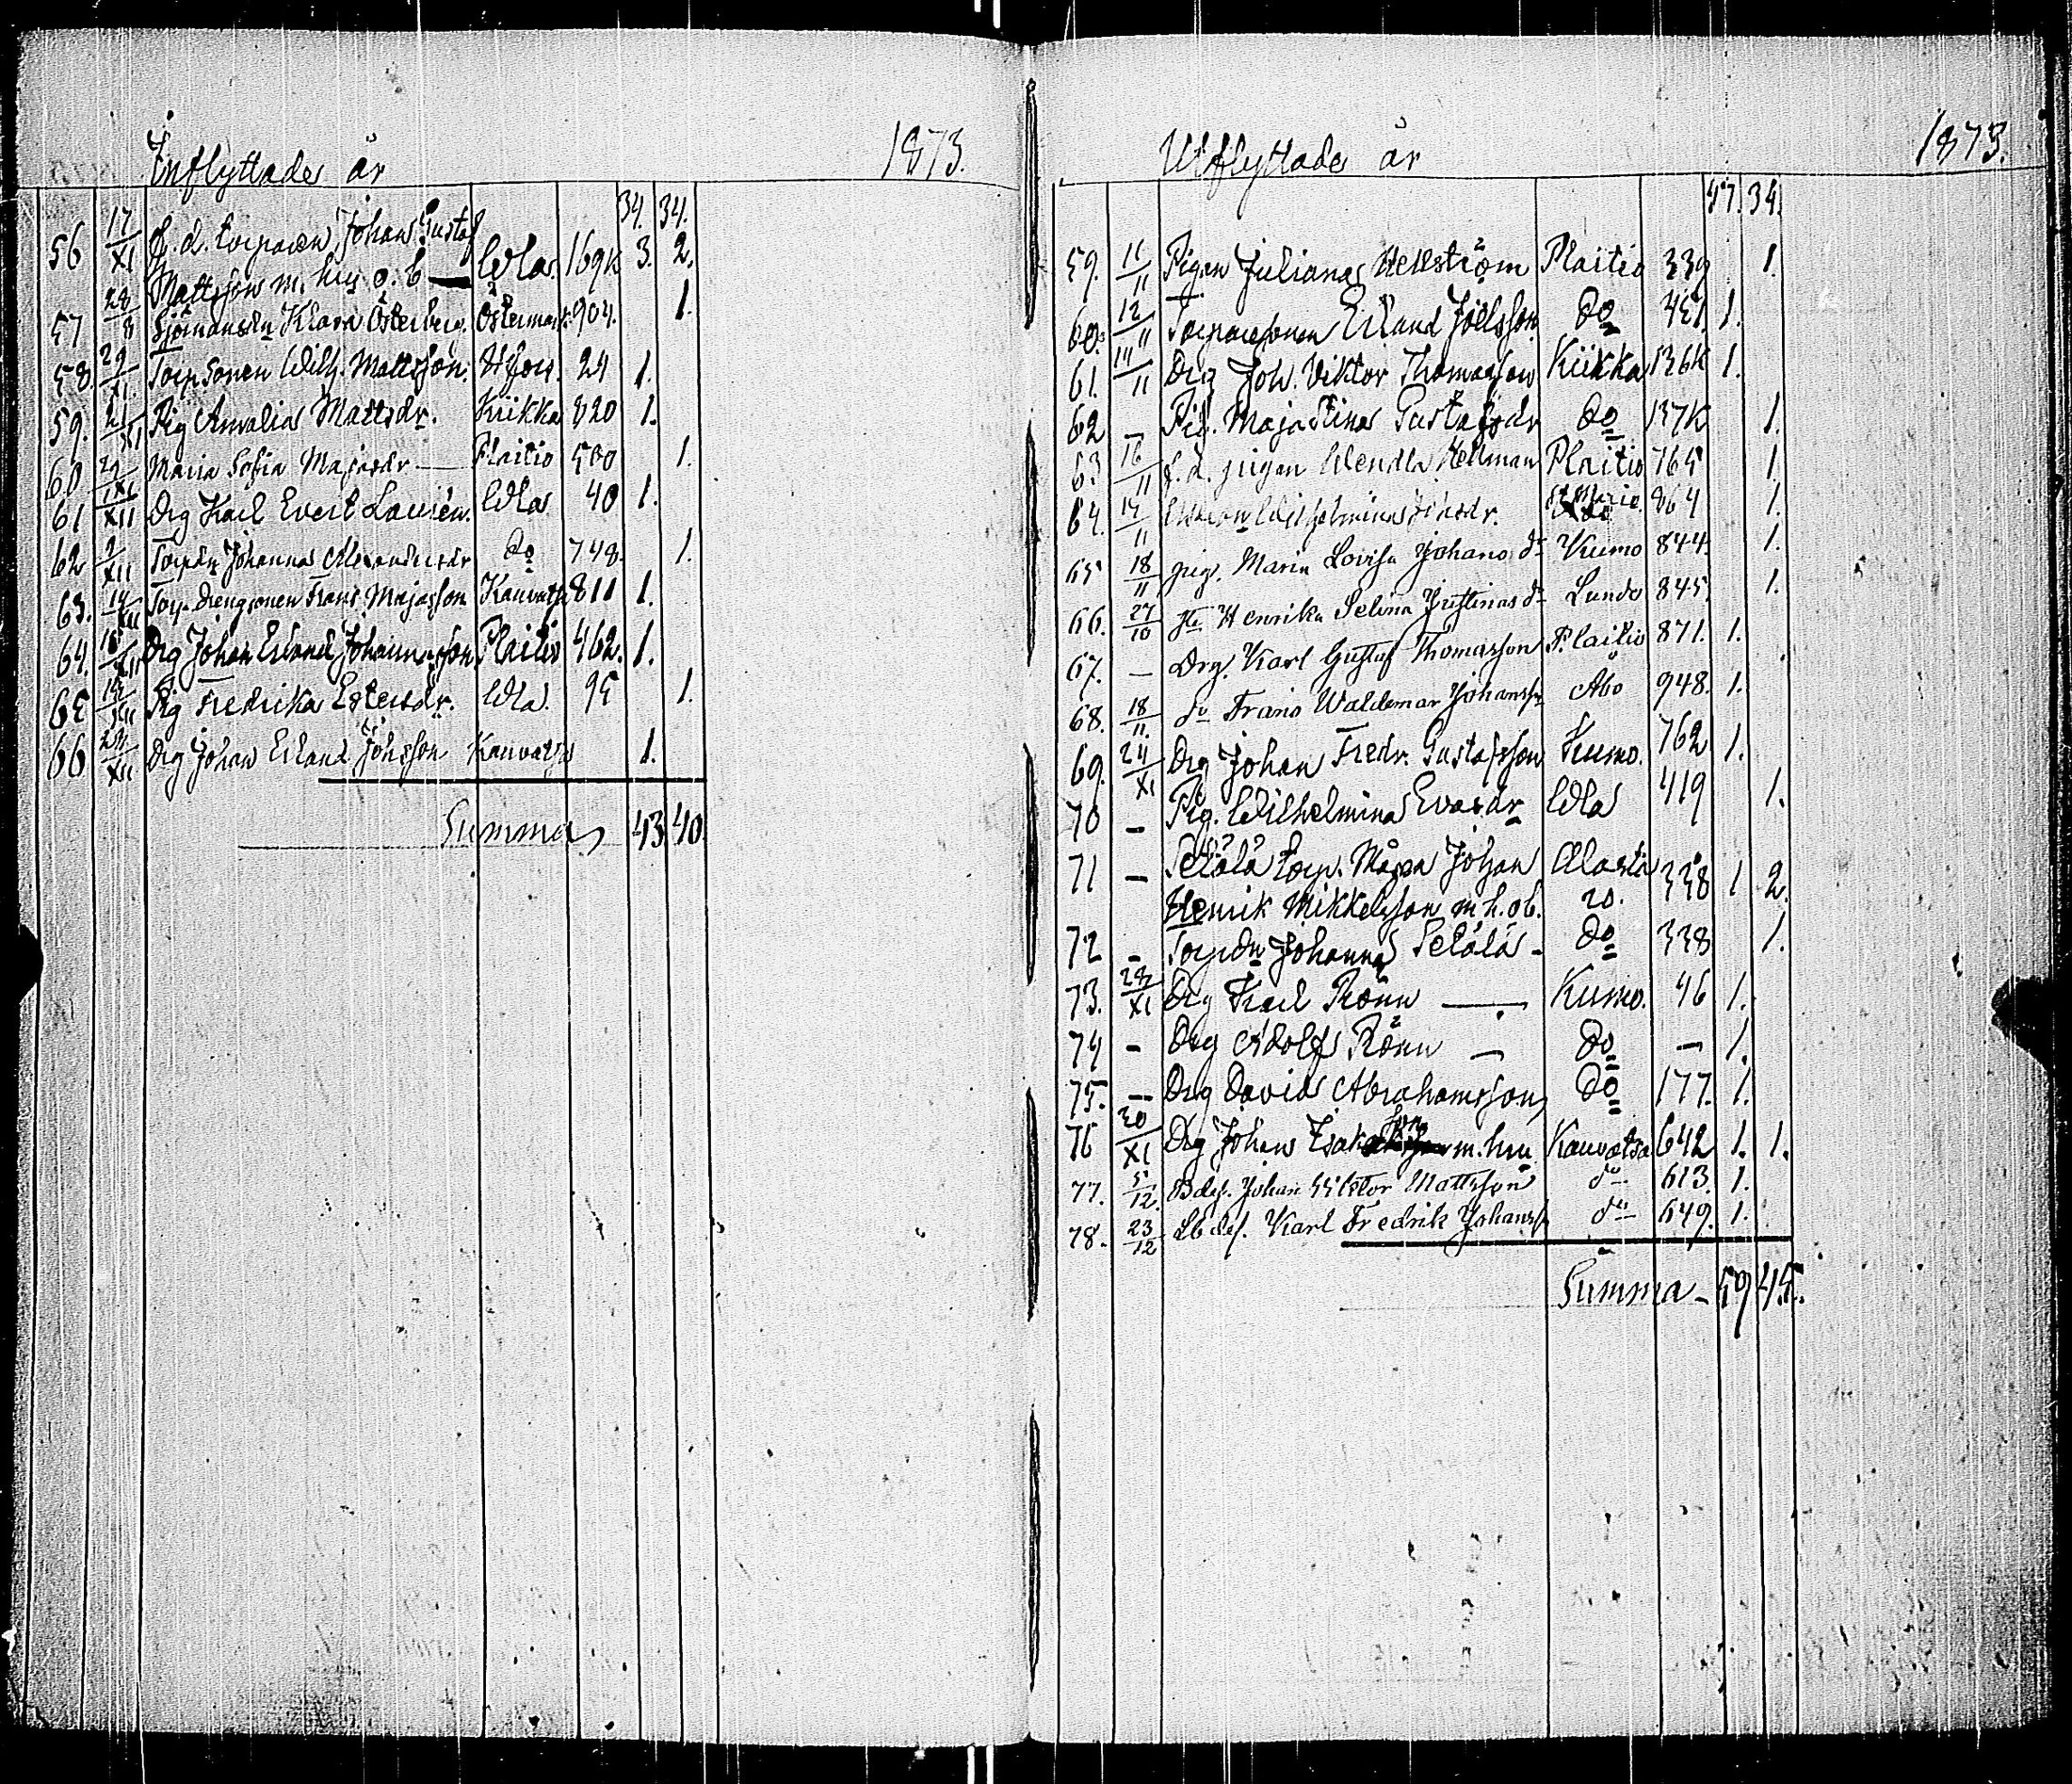 Inflyttade år 1873.
34. 34.
56 17/XI f. d. torparen Johan Gustaf
Mattsson m. hu o. b — Wla. 169K 3. 2.
57 28/8 Sjömansdn Klara Österberg. Östermark. 904. 1.
58. 29/XI. Torp sonen Wilh. Mattsson. Hfors. 24 1.
59. 21/XI Pig Amalia Mattsdr. Kiikka 820 1.
60 29/XI Maria Sofia Majasdr — Plaitis 500 1.
61 1/XII Drg Karl Evert Laurén. Wla 40 1.
62 2/XII Torpdn Johanna Alexandersdr do 748. 1.
63. 14/XII Torp. drengsonen Frans Majasson Kauvatsa 811 1.
64. 18/XII Drg Johan Erland Johansson Plaitis 462. 1.
65 19/XII Pig Fredrika Estersdr. Wla. 95 1.
66 24/XII Drg Johan Erland Johsson Kauvatsa 1.
Summa, 43 40.
Utflyttade år 1873.
47. 34.
59. 11/11 Pigan Juliana Hellström Plaitis 339 1.
60. 12/11 Torparesonen Erland Joelsson do 451. 1.
61. 14/11 Drg Joh. Viktor Thomasson Kiikka 136K 1.
62 — Pig. Maja Stina Gustafsdr do 137K 1.
63 16/11 f. d. pigan Wendla Hellman Plaitis 765 1.
64. 17/11 Wilhelmina St Marie. 864 1.
65 18/11 pig. Maria Lovisa Johans dr Kumo 844. 1.
66. 27/10 Henrika Selina Justinas dr Lundo 845. 1.
67. — Drg. Karl Gustaf Thomasson Plaitis 871. 1.
68. 18/11. do Frans Waldemar Johansson Åbo 948. 1.
69. 24/XI Drg Johan Fredr. Gustafsson Kumo. 762 1.
70 — Pig. Wilhelmina Evasdr Wla 419 1.
71 — Setälä torp. Måg Johan Alasta
Henrik Mikkelsson m h. o b. ro. 338 1 2.
72 - Torpdn Johanna Setälä - do 338 1.
73. 28/XI Drg Karl Rönn — Kumo. 46 1.
74 - Drg Adolf Rönn — do — 1.
75. — Drg David Abrahamsson, do 177. 1.
76 30/XI Drg Johan Isaksson m. hu Kauvatsa 642 1. 1.
77. 5/12. Bdes. Johan Viktor Mattsson do 613. 1.
78. 23/12 Lbdes. Karl Fredrik Johanss do 649. 1.
Summa - 59 45.